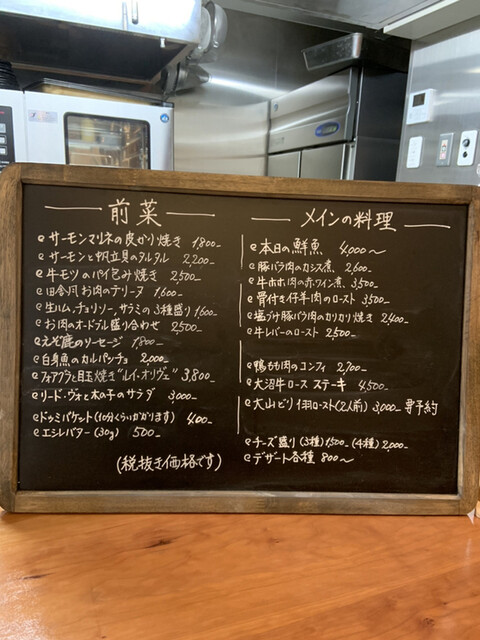 前菜
サーモンマリネの皮かり焼き 1,800-
サーモンと帆立貝のタルタル 2,200-
牛モツのパイ包み焼き 2,500-
田舎風お肉のテリーヌ 1,600-
生ハム、チョリソー、サラミの3種盛り 1,600-
お肉のオードブル盛り合わせ 2,500-
えぞ鹿のソーセージ 1,800-
白身魚のカルパッチョ 2,000-
フォアグラと目玉焼き"ルイ・オリヴェ" 3,800-
リード・ヴォと木の子のサラダ 3,000-
ドゥミバケット(10分くらいかかります) 400-
エシレバター(30g) 500-
(税抜き価格です)
メインの料理
本日の鮮魚 4,000〜
豚バラ肉のカシス煮 2,600-
牛ホホ肉の赤ワイン煮 3,500-
骨付き仔羊肉のロースト 3,500-
塩づけ豚バラ肉のカリカリ焼き 2,400-
牛レバーのロースト 2,500-
鴨もも肉のコンフィ 2,700-
大沼牛ロースステーキ 4,500-
大山どり1羽ロースト(2人前) 3,000- 要予約
チーズ盛り(3種)1,500- (4種)2,000-
デザート各種 800〜